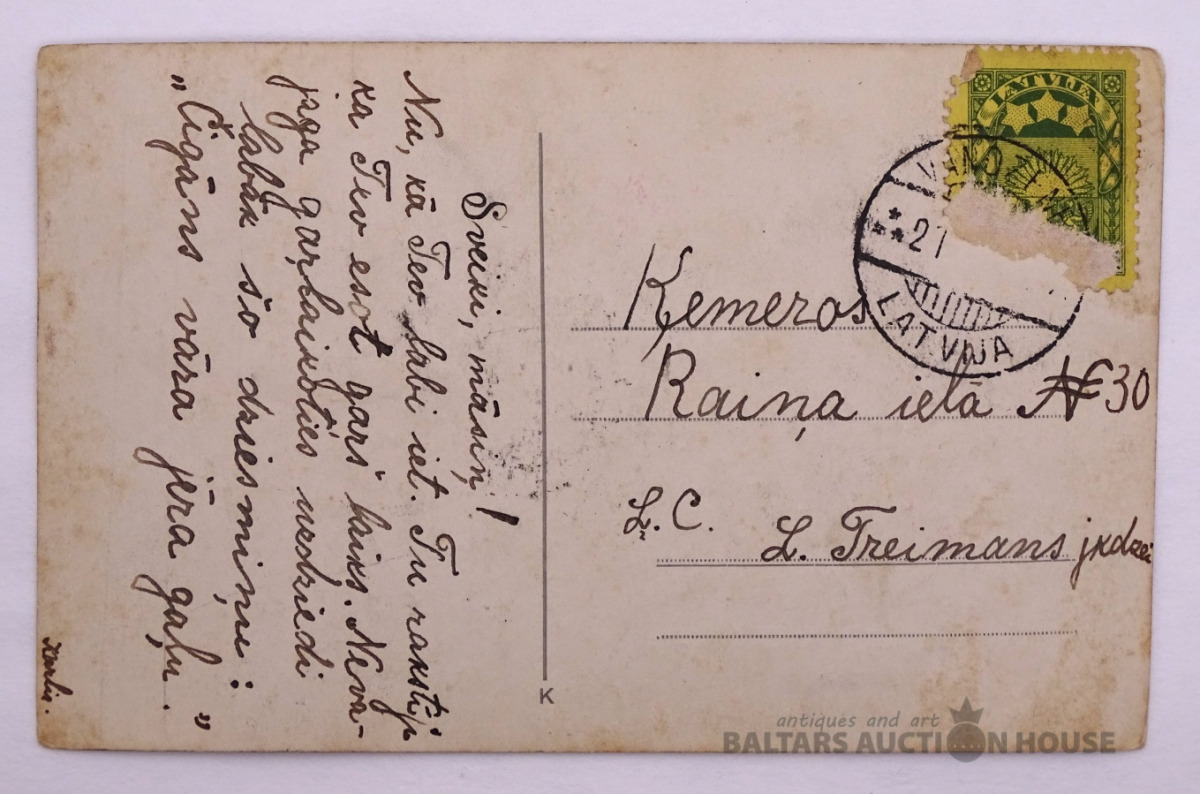 Sveiki, māsiņ!
Nu, kā Tev labi iet. Tu rakstij
ka Tev esot gars laiks. Neva-
jaga garlaikoties uedziedi
labāk šo dziesmiņu:
„Čigāns vāra jēra gaļu.”
LATVIJA
21
LATVIJA
Ķemeros
Raiņa ielā № 30
L. C. L. Treimans jkdzei
K
antiques and art
BALTARS AUCTION HOUSE